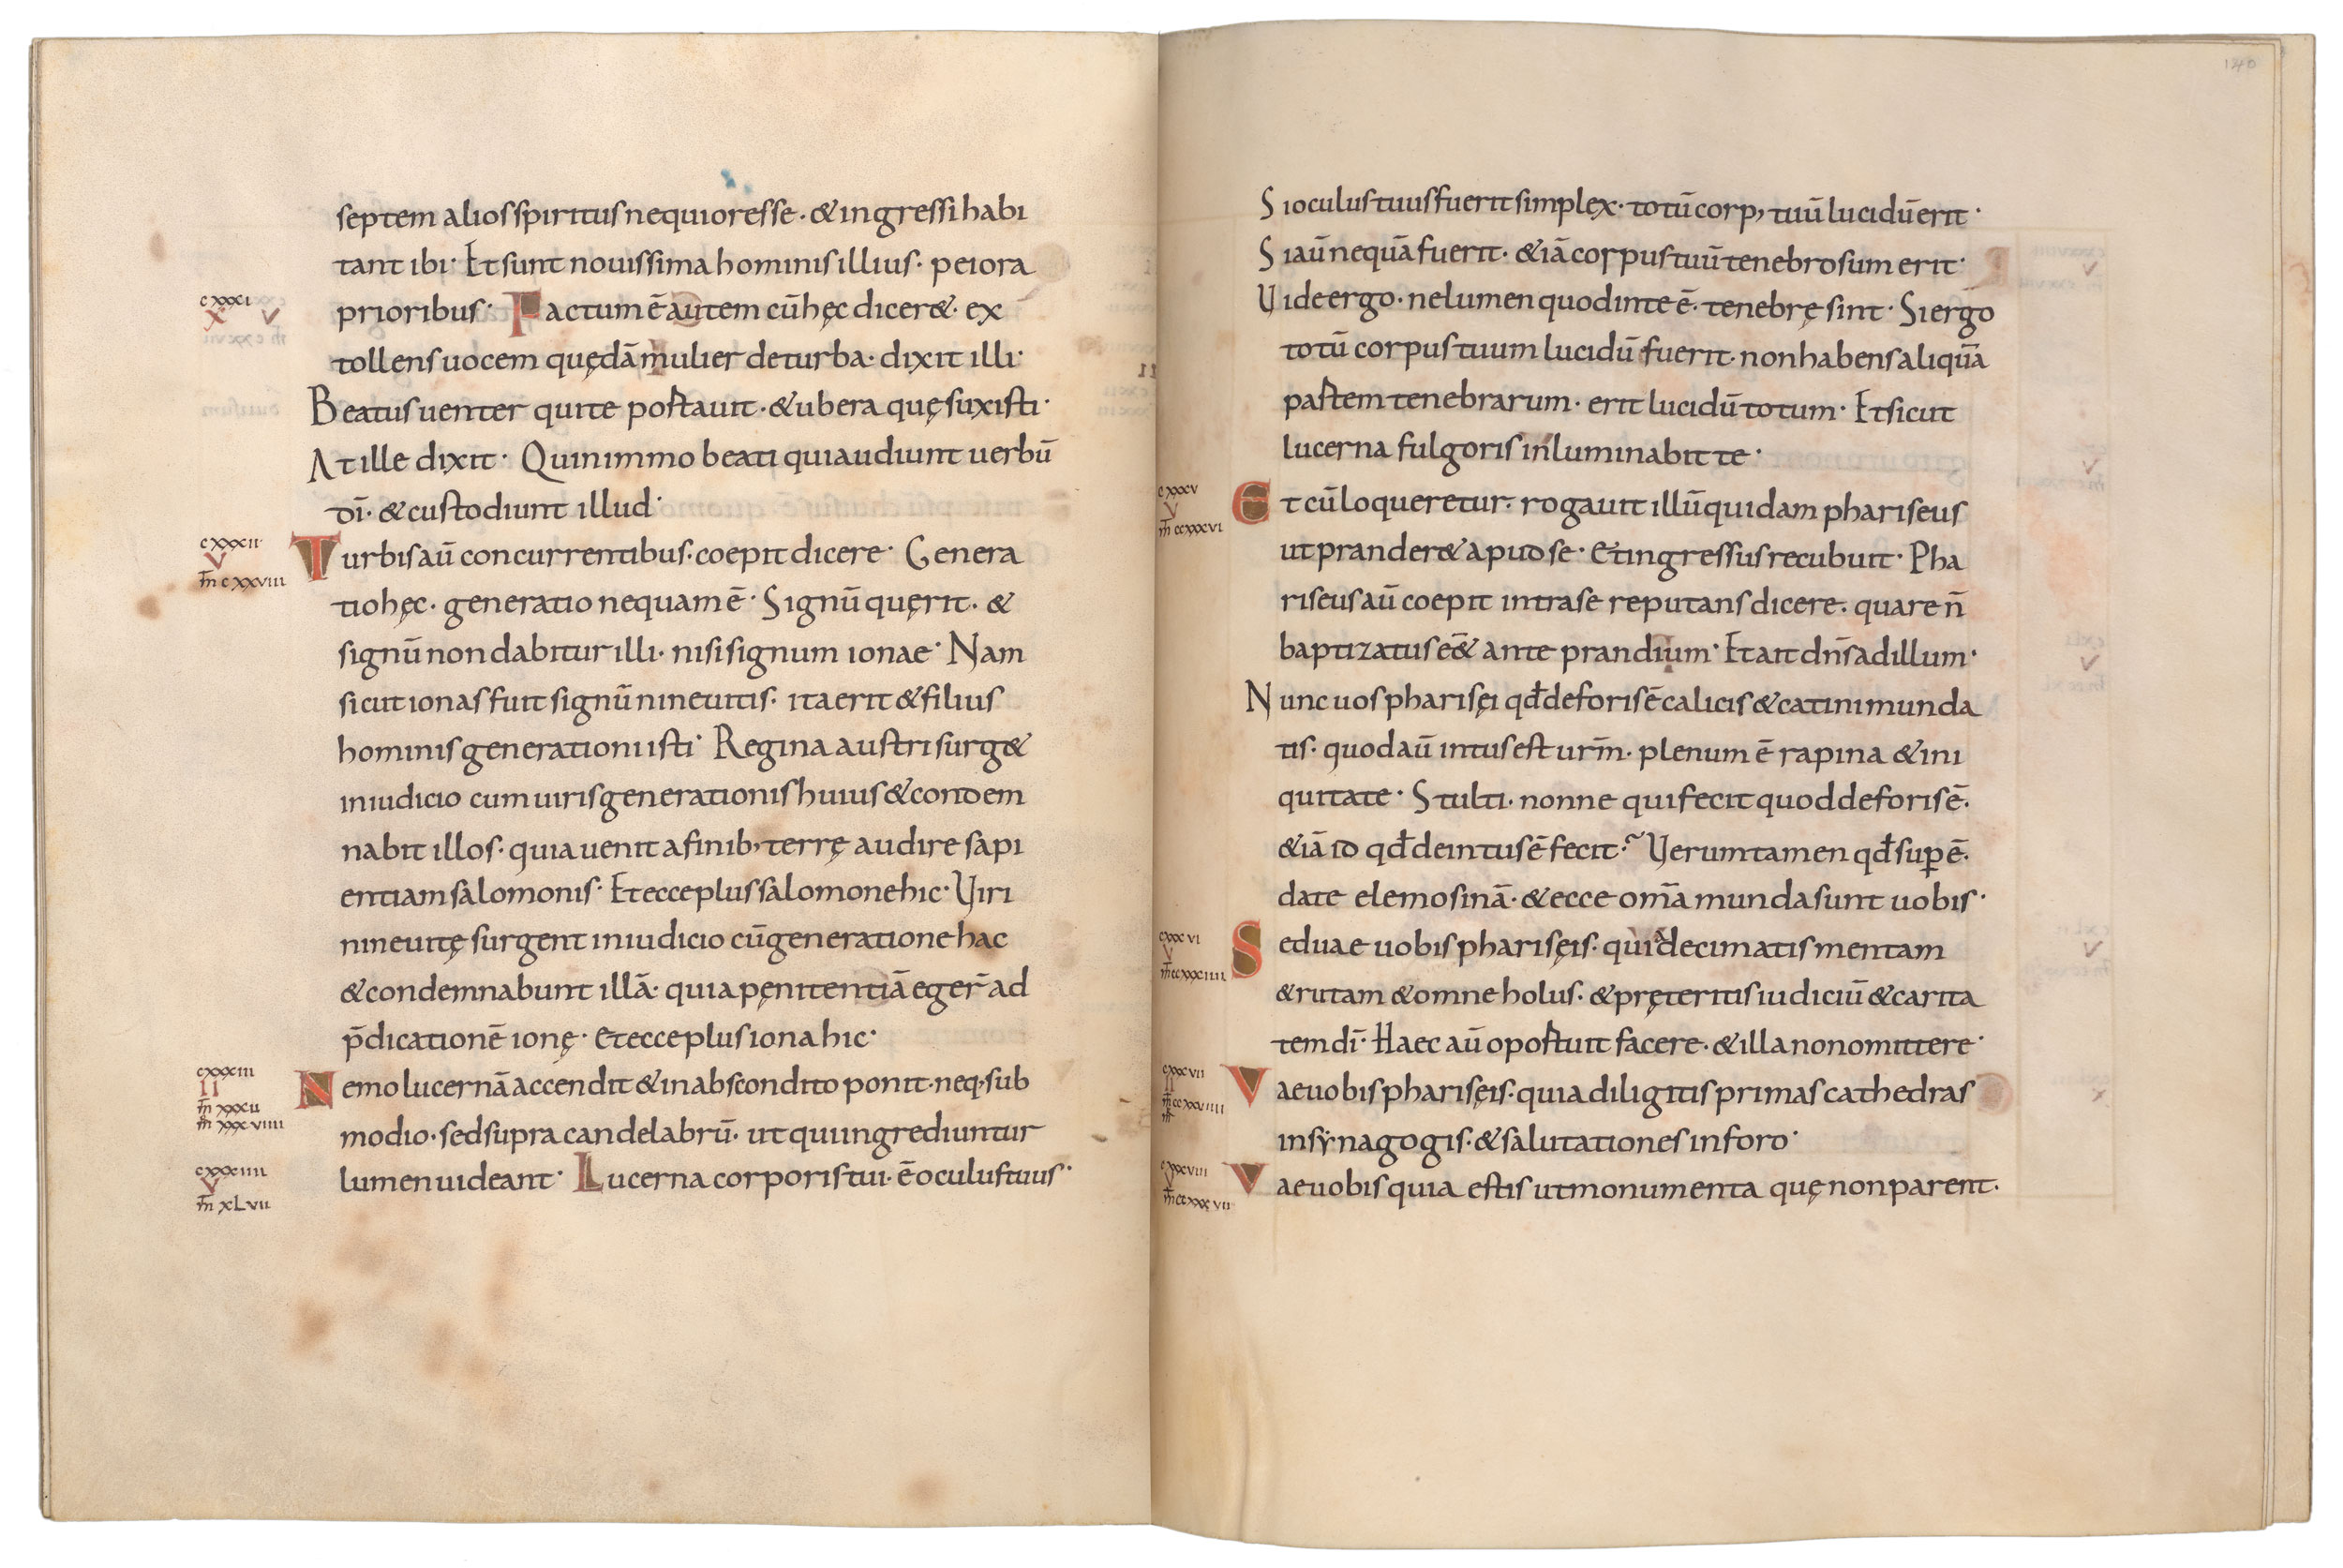 septem alios spiritus nequiores se · & ingressi habi
tant ibi · Et sunt nouissima hominis illius · peiora
cxxxi
x v
prioribus · Factum ē autem cū hęc dicer& · ex
tollens uocem quędā mulier de turba · dixit illi ·
Beatus uenter qui te portauit · & ubera quę suxisti ·
At ille dixit · Quinimmo beati qui audiunt uerbū
dī · & custodiunt illud ·
cxxxii
v
m̄ cxxviii
Turbis aū concurrentibus · coepit dicere · Genera
tio hęc · generatio nequam ē · Signū quęrit · &
signū non dabitur illi · nisi signum ionae · Nam
sicut ionas fuit signū nineuitis · ita erit & filius
hominis generationi isti · Regina austri surg&
in iudicio cum uiris generationis huius & condem
nabit illos · quia uenit a finib; terrę audire sapi
entiam salomonis · Et ecce plus salomone hic · Viri
nineuitę surgent in iudicio cū generatione hac
& condemnabunt illā · quia pęnitentiā eger̄ ad
p̄dicationē ionę · Et ecce plus iona hic ·
cxxxiii
ii
m̄ xxxii
m̄ xxxviiii
Nemo lucernā accendit & in abscondito ponit · neq; sub
modio · sed supra candelabrū · ut qui ingrediuntur
cxxxiiii
v
m̄ xLvii
lumen uideant · Lucerna corporis tui · ē oculus tuus ·
140
Si oculus tuus fuerit simplex · totū corp; tuū lucidū erit ·
Si aū nequā fuerit · &iā corpus tuū tenebrosum erit ·
Uide ergo · ne lumen quod in te ē · tenebrę sint · Si ergo
totū corpus tuum lucidū fuerit · non habens aliquā
partem tenebrarum · erit lucidū totum · Et sicut
lucerna fulgoris inluminabit te ·
cxxxv
v
m̄ ccxxxvi
Et cū loqueretur · rogauit illū quidam phariseus
ut prander& apud se · Et ingressus recubuit · Pha
riseus aū coepit intra se reputans dicere · quare n̄
baptizatus eē& ante prandium · Et ait dn̄s ad illum ·
Nunc uos pharisęi qd̄ deforis ē calicis & catini munda
tis · quod aū intus est ur̄m · plenum ē rapina & ini
quitate · Stulti · nonne qui fecit quod deforis ē ·
&iā id qd̄ deintus ē fecit · Verumtamen qd̄ sup̱ ē ·
date elemosinā · & ecce om̄a munda sunt uobis ·
cxxxvi
v
Sed uae uobis pharisęis · qui decimatis mentam
& rutam & omne holus · & pręteritis iudiciū & carita
tem dī · Haec aū oportuit facere · & illa non omittere ·
cxxxvii
ii
Vae uobis pharisęis · quia diligitis primas cathedras
in synagogis · & salutationes in foro ·
cxxxviii
v
Vae uobis quia estis ut monumenta quę non parent ·